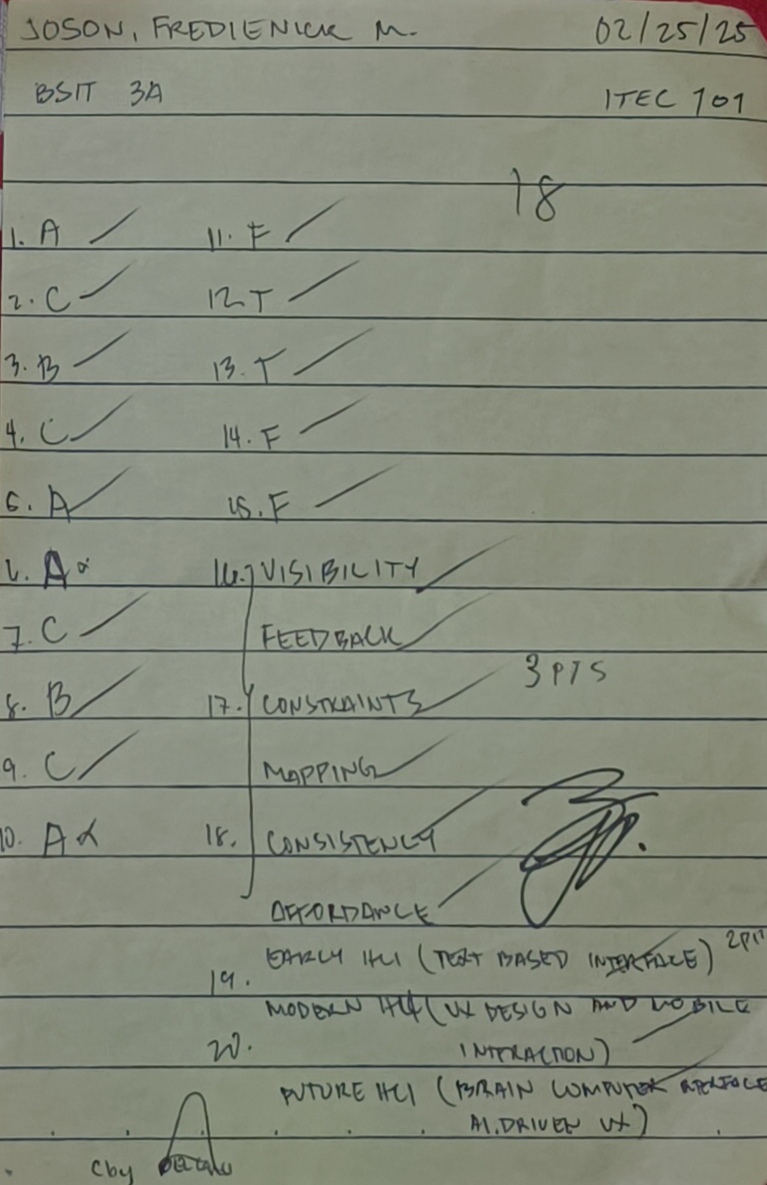 JOSON, FREDIENICK M. 02/25/25
BSIT 3A ITEC 101
18
1. A 11. F
2. C 12. T
3. B 13. T
4. C 14. F
5. A 15. F
6. A 16. VISIBILITY
7. C FEEDBACK
3 PTS
8. B 17. CONSTRAINTS
9. C MAPPING
10. A 18. CONSISTENCY
AFFORDANCE
19. EARLY HCI (TEXT BASED INTERFACE) 2PTS
MODERN HCI (UX DESIGN AND MOBILE
20. INTERACTION)
FUTURE HCI (BRAIN COMPUTER INTERFACE
AI.DRIVEN UX)
Cby